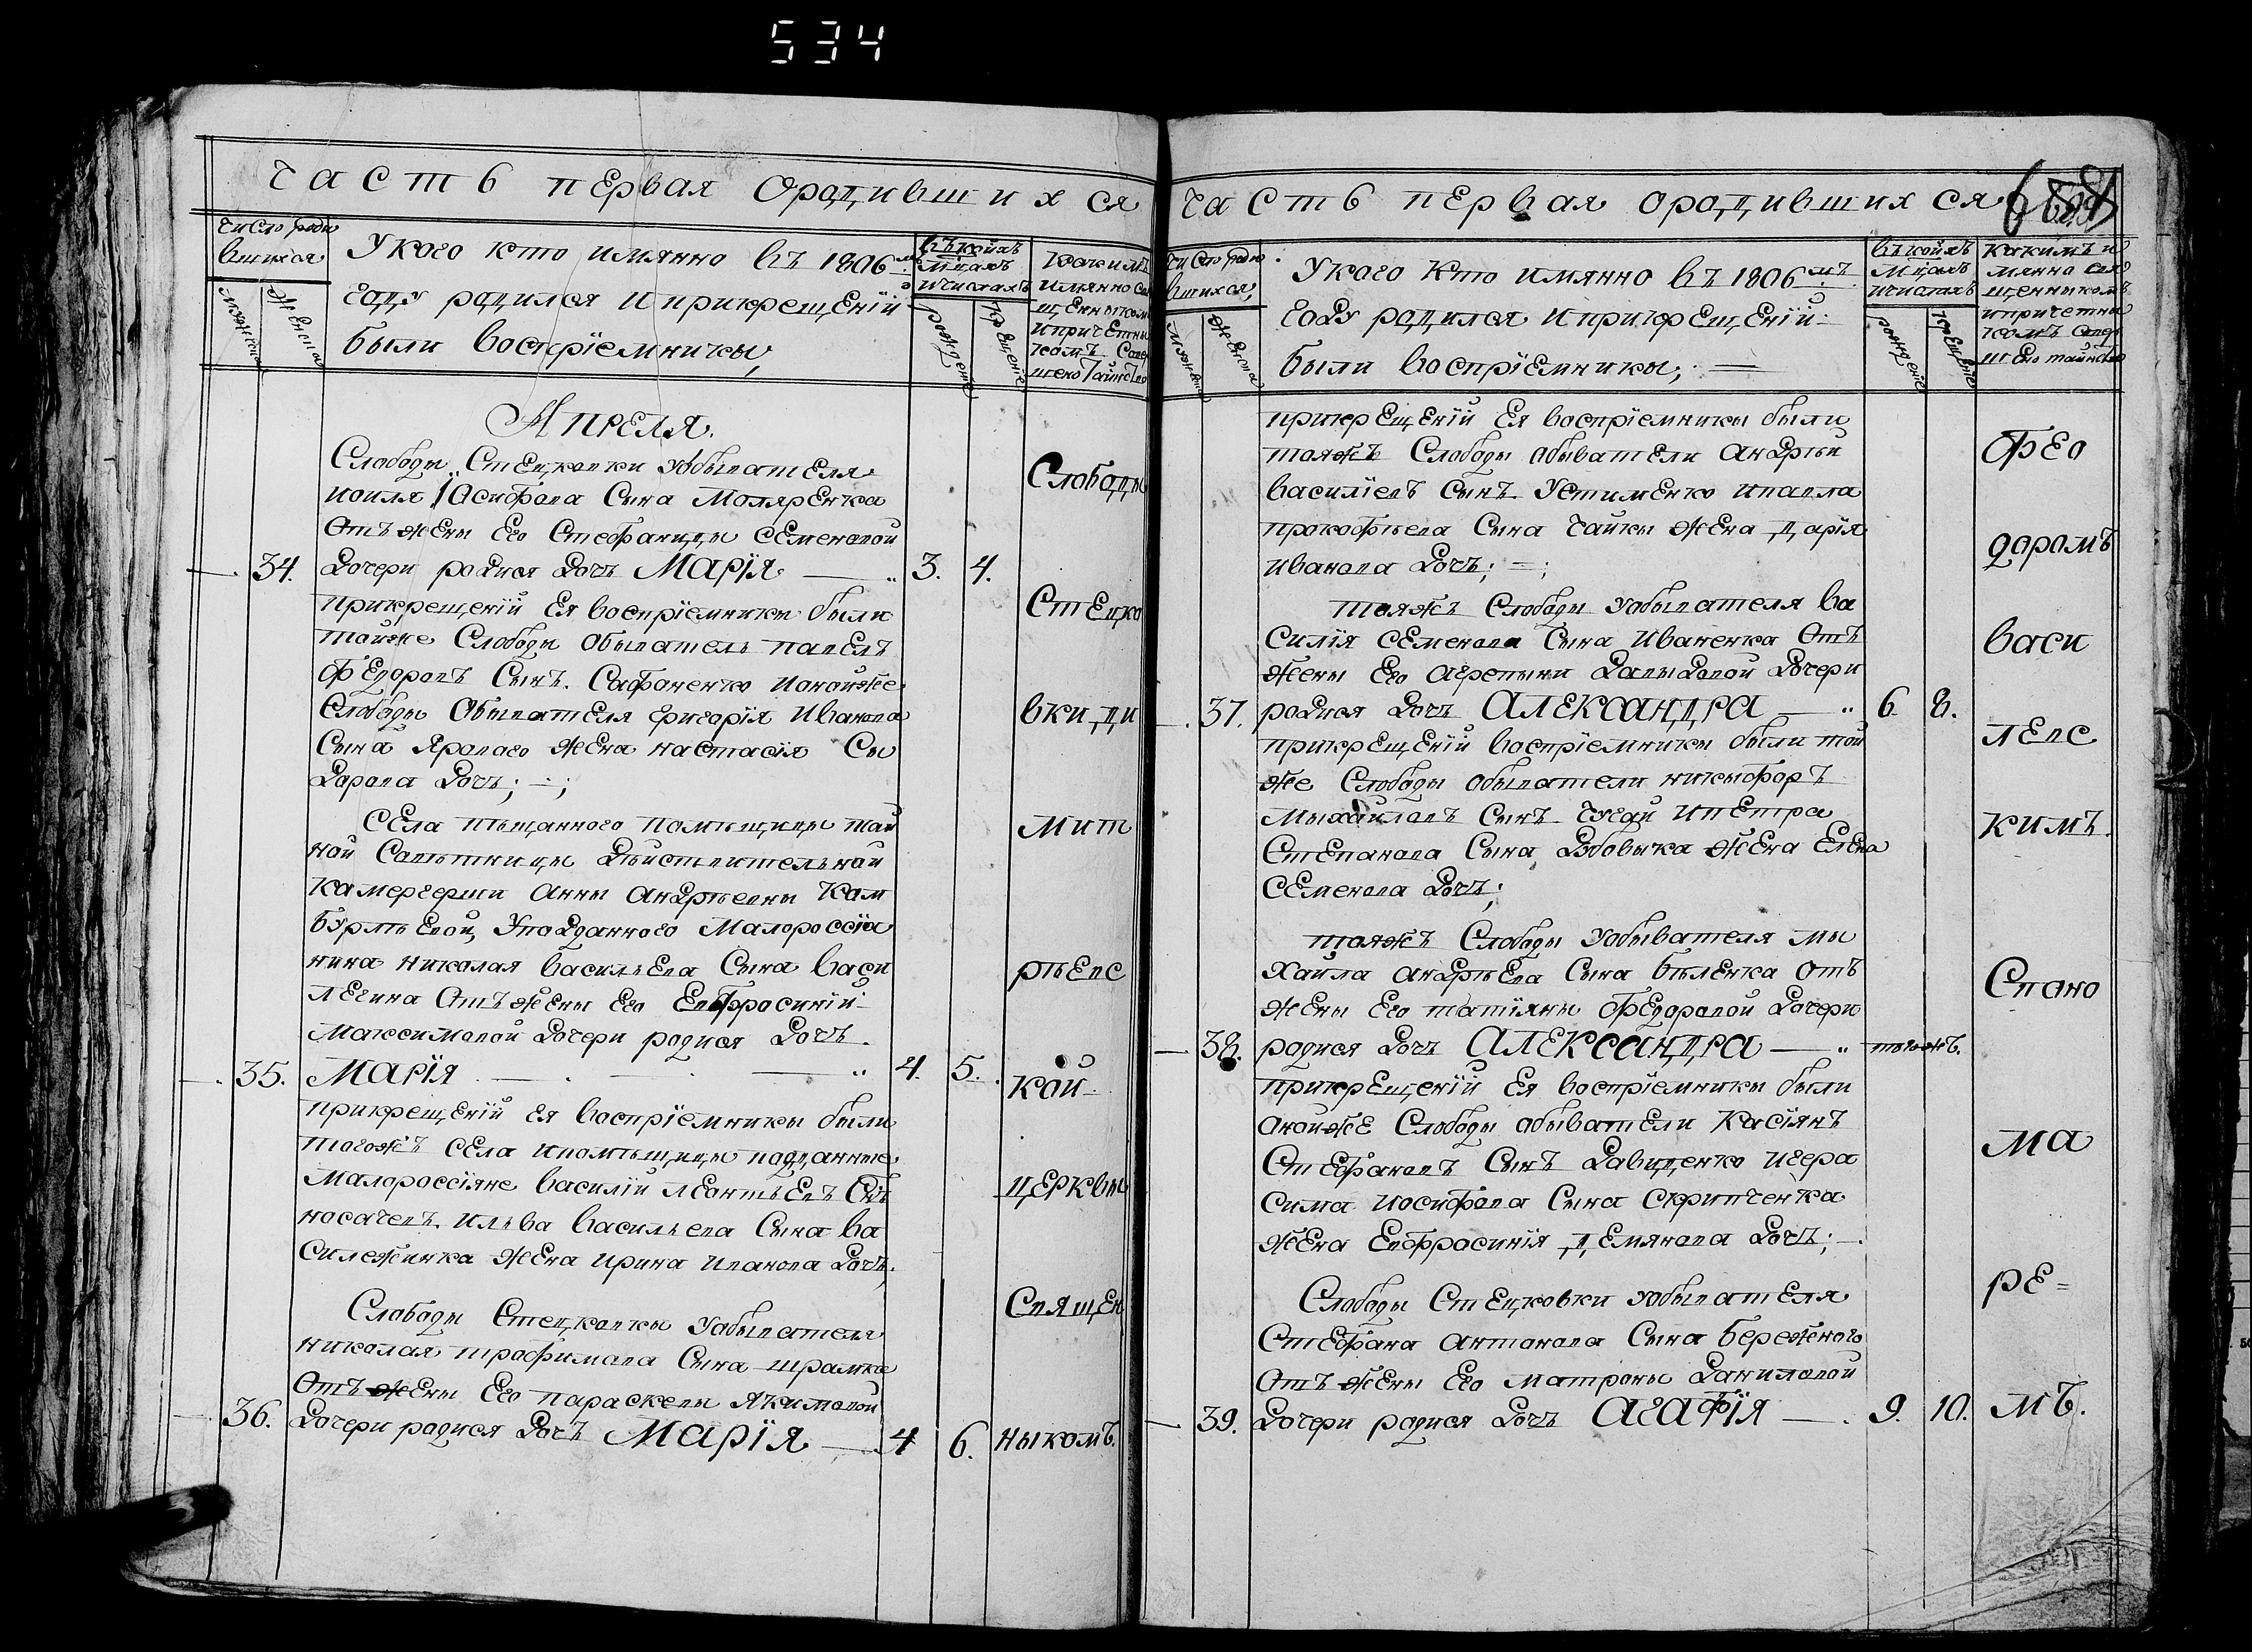 534
Часть первая ородившихся
число роди
вшихся
мужеска
женска
Укого кто имянно въ 1806мъ
году родился иприкрещенїи
были воспрїемники,
въкоихъ
мцахъ
ичислахъ
рожденїе
крещенїе
какимъ
имянно свя
щенником
ипричетни
комъ совер
шено таинство
Апреля.
Слободы Стецковки уобывателя
иоиля Iосифова Сына Моляренка
Отъ жены Его Стефаниды Семеновой
34. дочери родися дочъ Марїя 3. 4.
прикрещенїй Ея воспрїемники были
тойже Слободы обыватель павелъ
Федоровъ Сынъ Сафоненко ионойже
Слободы Обывателя григорїя Иванова
Сына Яроваго жена настасїя Сы
дорова дочъ;
Села пещанного помѣщицы тай
ной Совѣтницы Дѣйствителъной
камергерши анны андрѣевны Ком
бурлѣевой, Уподданного Малороссїя
нина николая васильева Сына васи
легина Отъ жены Его Евфросинїй
Максимовой дочери родися дочъ
35. Марїя 4. 5.
прикрещенїй ея воспрїемники были
тогожъ Села ипомѣщицы подданные
Малороссїяне василїй леонтьевъ Снъ
носачевъ ильва васильева Сына ва
силежинка жена ирина иванова дочъ,
Слободы Стецковки уобывателя
николая трофимова Сына шрамка
Отъ жены Его параскевы Якимовой
36. дочери родися дочъ Марїя 4 6.
Слободы
Стецко
вки ди
мит
рѣевс
кой
церквы
Священ
ныкомъ.
Часть первая ородившихся
число роди
вшихся,
мужеска
женска
Укого кто имянно въ 1806мъ
году родился иприкрещенїй
были воспрїемники;
въкоихъ
мцахъ
ичислахъ
рожденїе
крещенїе
какимъ и
мянно свя
щенникомъ
ипричетны
комъ совер
шено таинство
прикрещенїй Ея воспрїемники были
тояжъ Слободы обыватели андрѣй
василїевъ Сынъ Устименко ипавла
прокофѣева Сына Чайки жена дарїя
иванова дочъ;
тояжъ Слободы уобывателя ва
силїя Семенова Сына иваненка Отъ
жены Его агрепыны давыдовой дочери
37. родися дочъ Александра 6 8.
прикрещенїй воспрїемники были той
же Слободы обыватели никыфоръ
Мыхайловъ Сынъ Чугай ипетра
Степанова Сына дубовыка жена Елена
Семенова дочъ;
тояжъ Слободы уобывателя мы
хайла андрѣева Сына бѣленка отъ
жены Его татїяны Федоровой дочери
38. родися дочъ Александра тогожъ.
прикрещенїй Ея воспрїемники были
онойже Слободы обыватели касїянъ
Стефановъ Сынъ давиденко игера
сима иосифова Сына Скрипченка
жена Евфросинїя демянова дочъ;
Слободы Стецковки уобывателя
Стефана антонова Сына бережного
Отъ жены Его матроны даниловой
39. дочери родися дочъ агафїя 9. 10.
Фео
доромъ
васи
левс
кимъ.
Споно
ма
ре=
мъ.